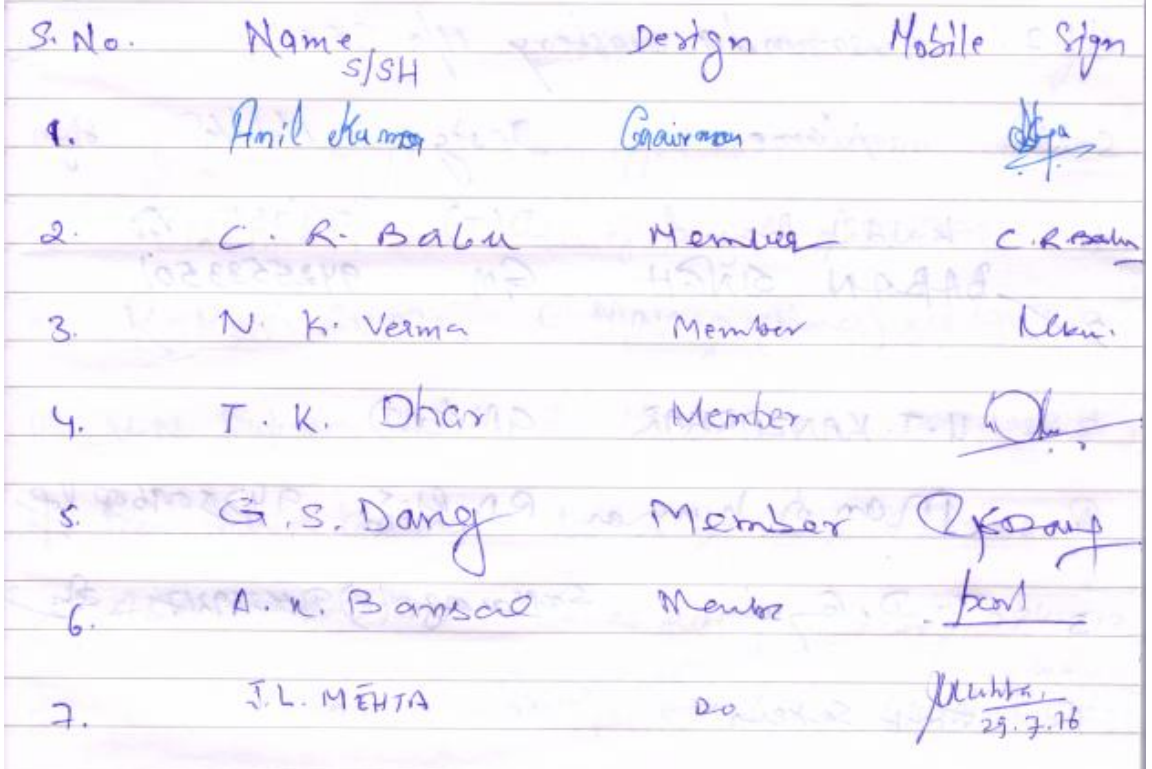 S. No. Name Design Mobile Sign
S/SH
1. Anil Kumar Chairman
2. C. R. Babu Member C. R. Babu
3. N. K. Verma Member
4. T. K. Dhar Member
5. G. S. Dang Member
6. A. K. Bansal Member
7. J. L. MEHTA Do
29.7.16